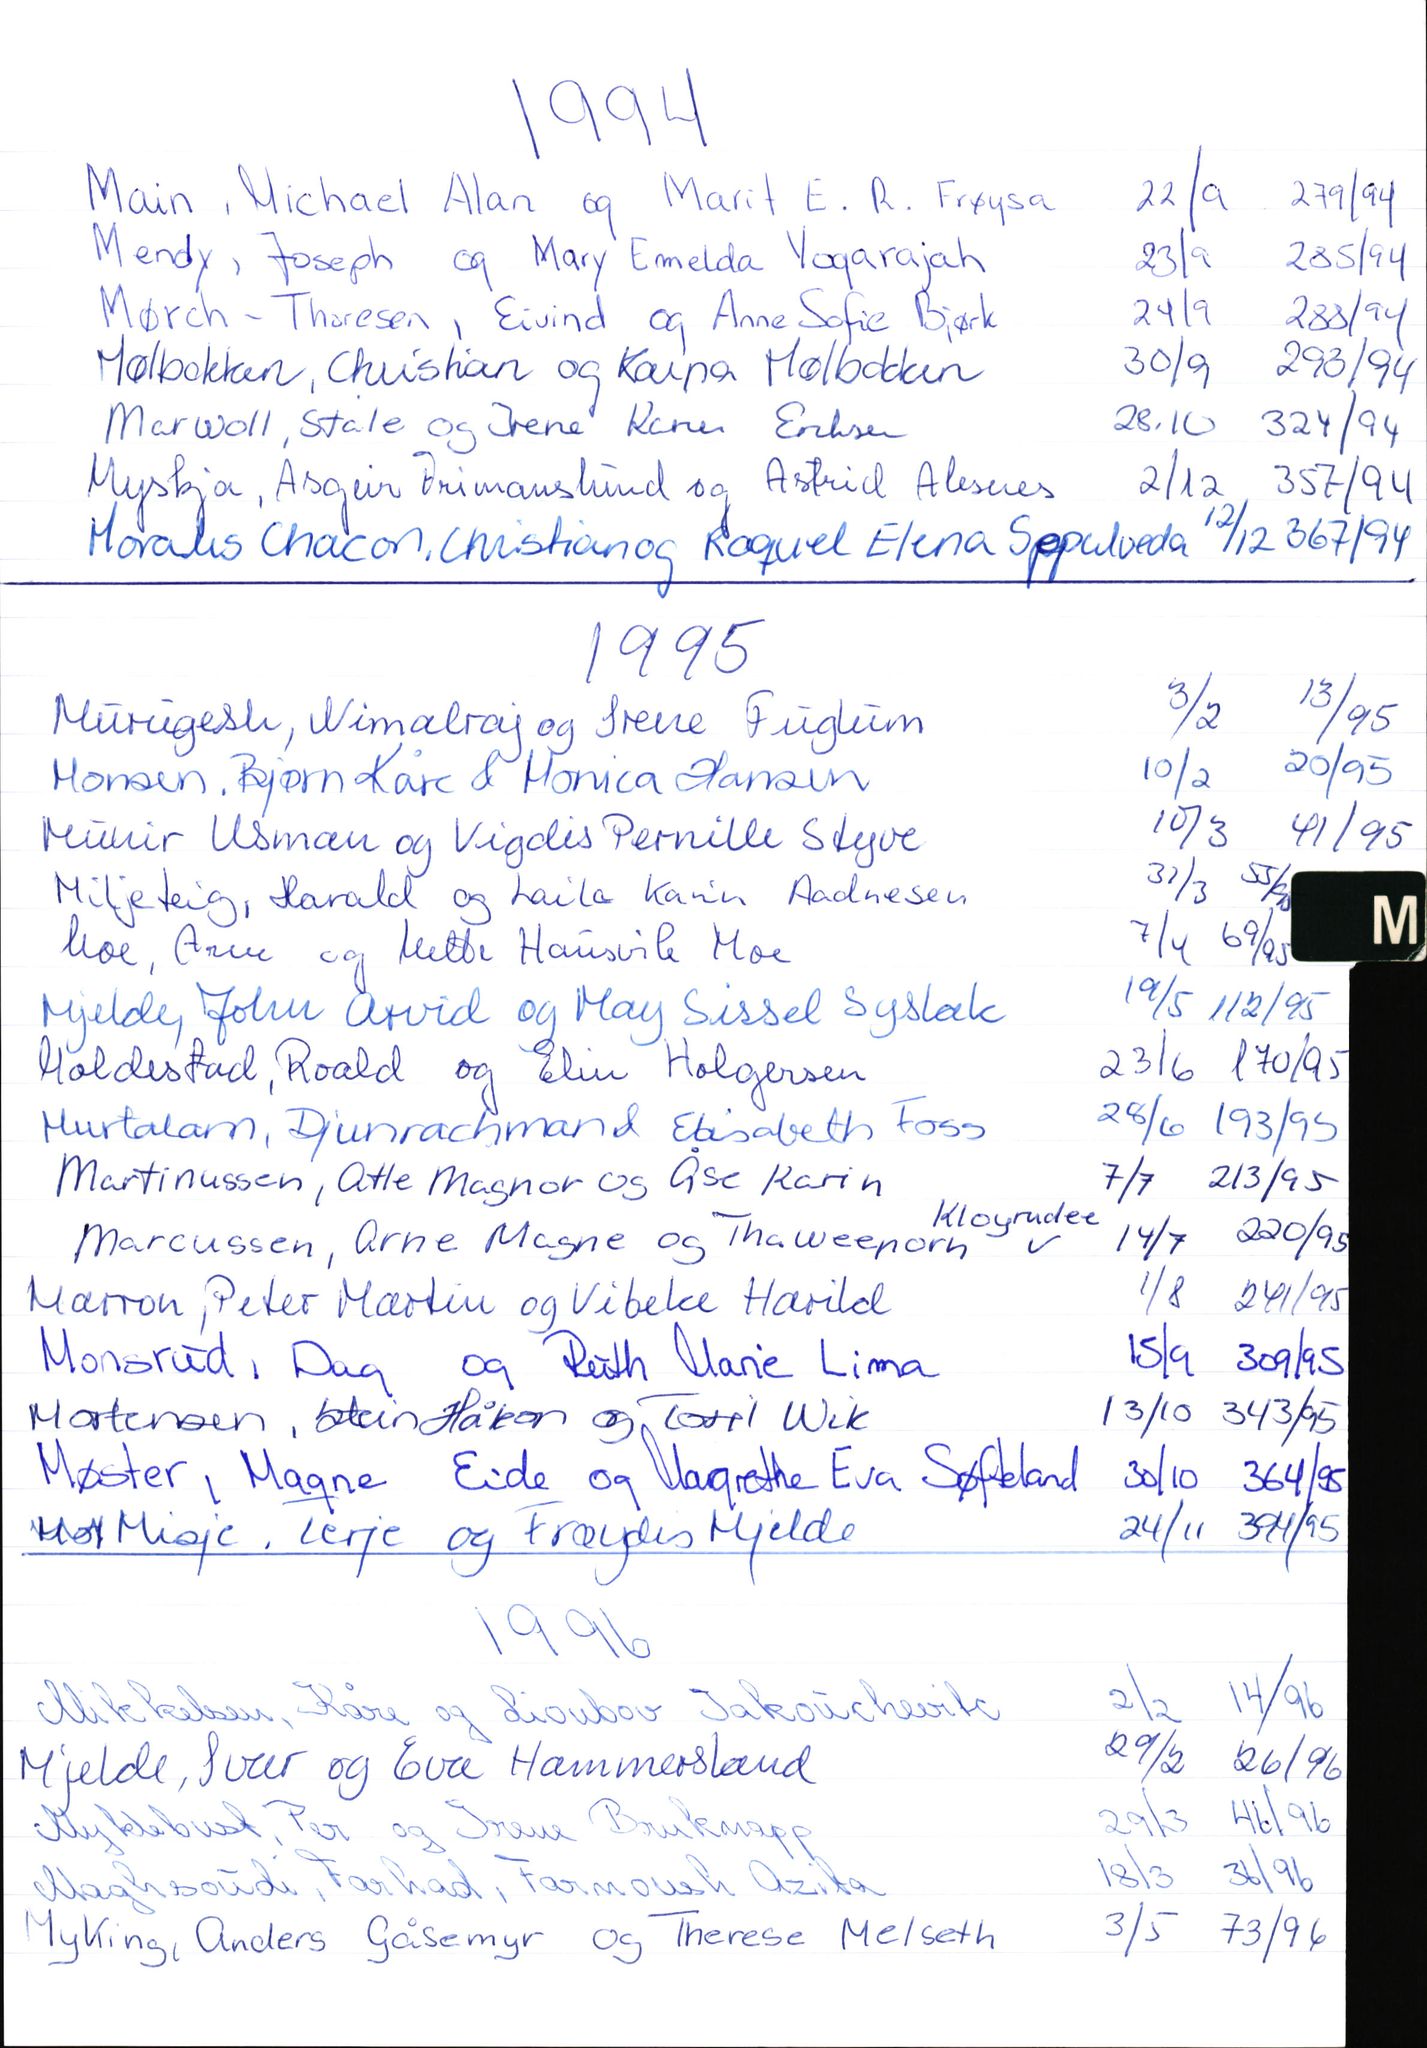 1994
Main, Michael Alan og Marit E. R. Frøysa 22/9 279/94
Mendy, Joseph og Mary Emelda Yogarajah 23/9 285/94
Mørch - Thoresen, Eivind og Anne Sofie Bjørk 24/9 288/94
Mølbakken, Christian og Kaipa Mølbakken 30/9 293/94
Marwoll, Ståle og Irene Karin Eriksen 28.10 324/94
Myskja, Asgeir Frimanslund og Astrid Alesnes 2/12 357/94
Morales Chacon, Christian og Raquel Elena Sepulveda 12/12 367/94
1995
Murugesh, Nimalraj og Irene Fuglum 3/2 13/95
Monsen, Bjørn Kåre & Monica Hansen 10/2 20/95
Munir Usman og Vigdis Pernille Styve 10/3 41/95
Miljeteig, Harald og Laila Karin Aadnesen 31/3 55/95
Moe, Arne og Mette Hausvik Moe 7/4 69/95
M
Mjelde, John Arvid og May Sissel Syslak 19/5 112/95
Moldestad, Roald og Elin Holgersen 23/6 170/95
Murtalam, Djunrachman & Elisabeth Foss 28/6 193/95
Martinussen, Atle Magnor og Åse Karin 7/7 213/95
Marcussen, Arne Magne og Thaweeporn Kloyrudee 14/7 220/95
Marron, Peter Martin og Vibeke Harild 1/8 241/95
Monsrud, Dag og Ruth Marie Lima 15/9 309/95
Mortensen, Stein Håkon og Toril Wik 13/10 343/95
Møster, Magne Eide og Margrethe Eva Søfteland 30/10 364/95
Misje, Terje og Frøydis Mjelde 24/11 394/95
1996
Mikkelsen, Kåre og Lioubov Jakouchevitc 2/2 14/96
Mjelde, Ivar og Eva Hammersland 29/2 26/96
Myklebust, Per og Irene Bruknapp 29/3 46/96
Maghsoudi, Farhad, Farnoush Azita 18/3 36/96
Myking, Anders Gåsemyr og Therese Melseth 3/5 73/96